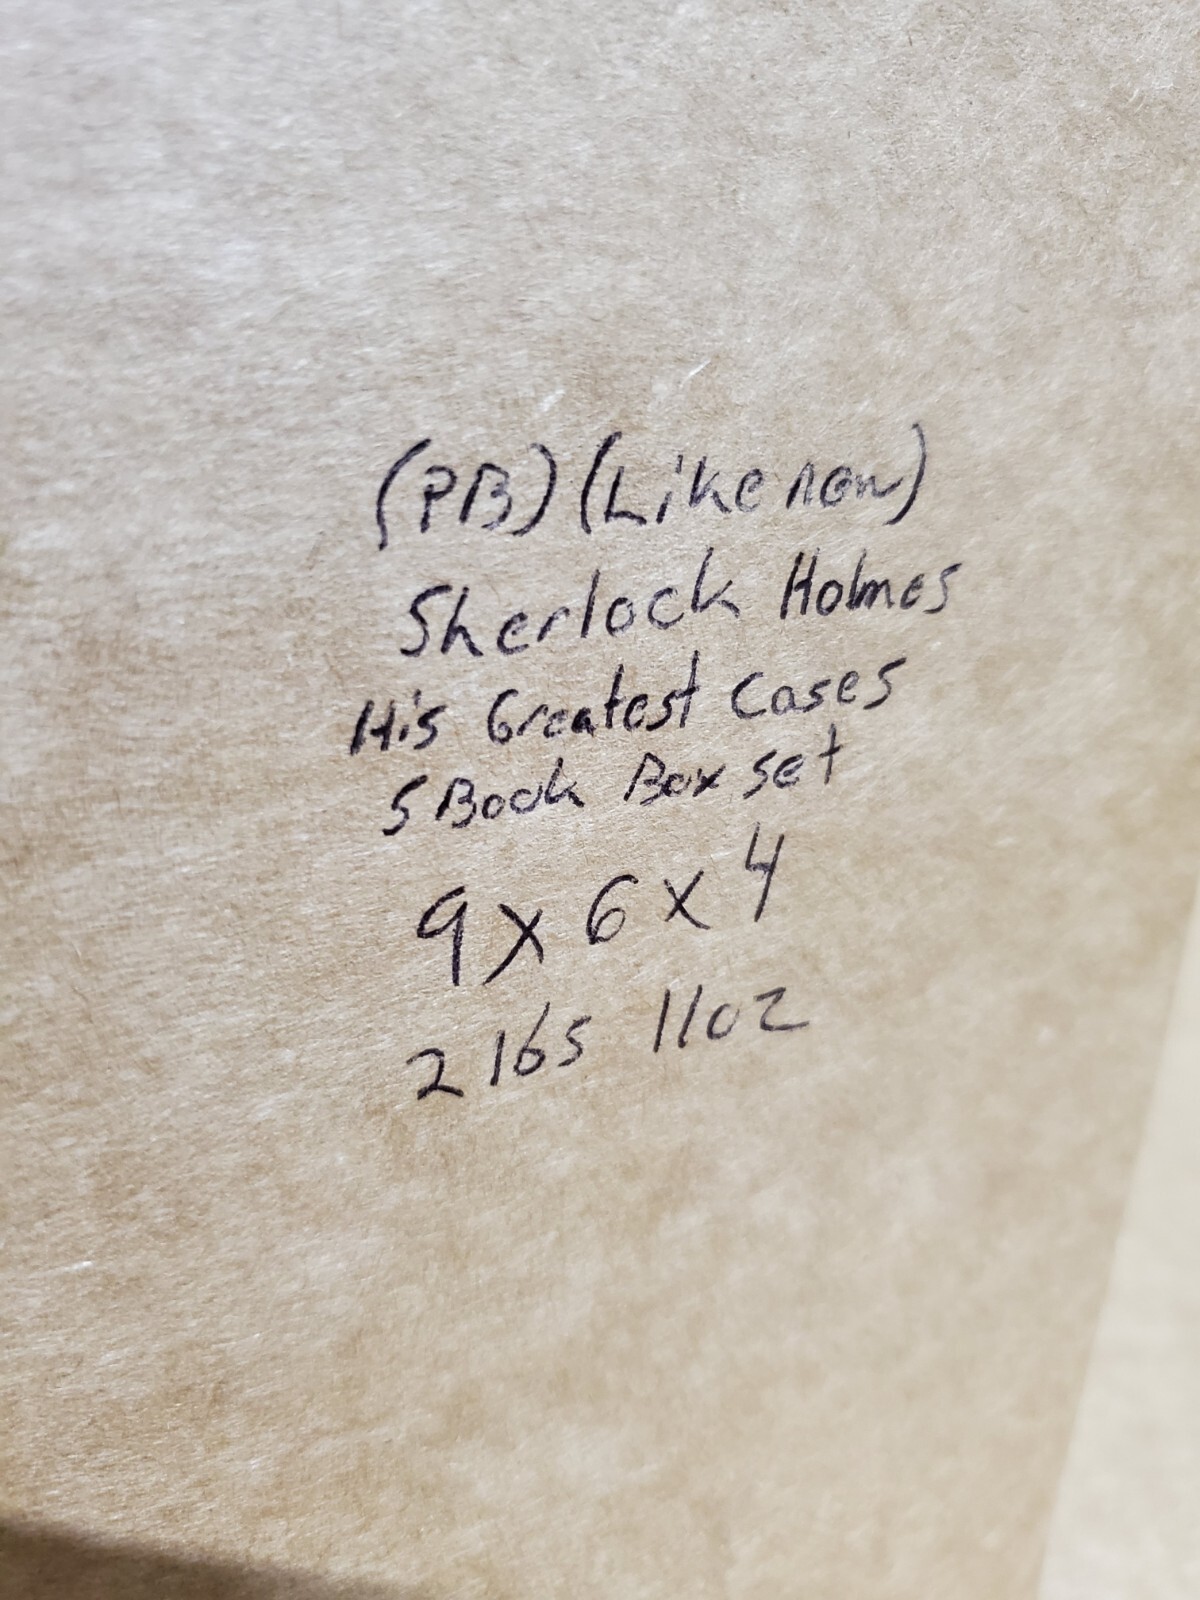 (PB) (Like new)
Sherlock Holmes
His Greatest Cases
5 Book Box set
9 x 6 x 4
2 lbs 11oz